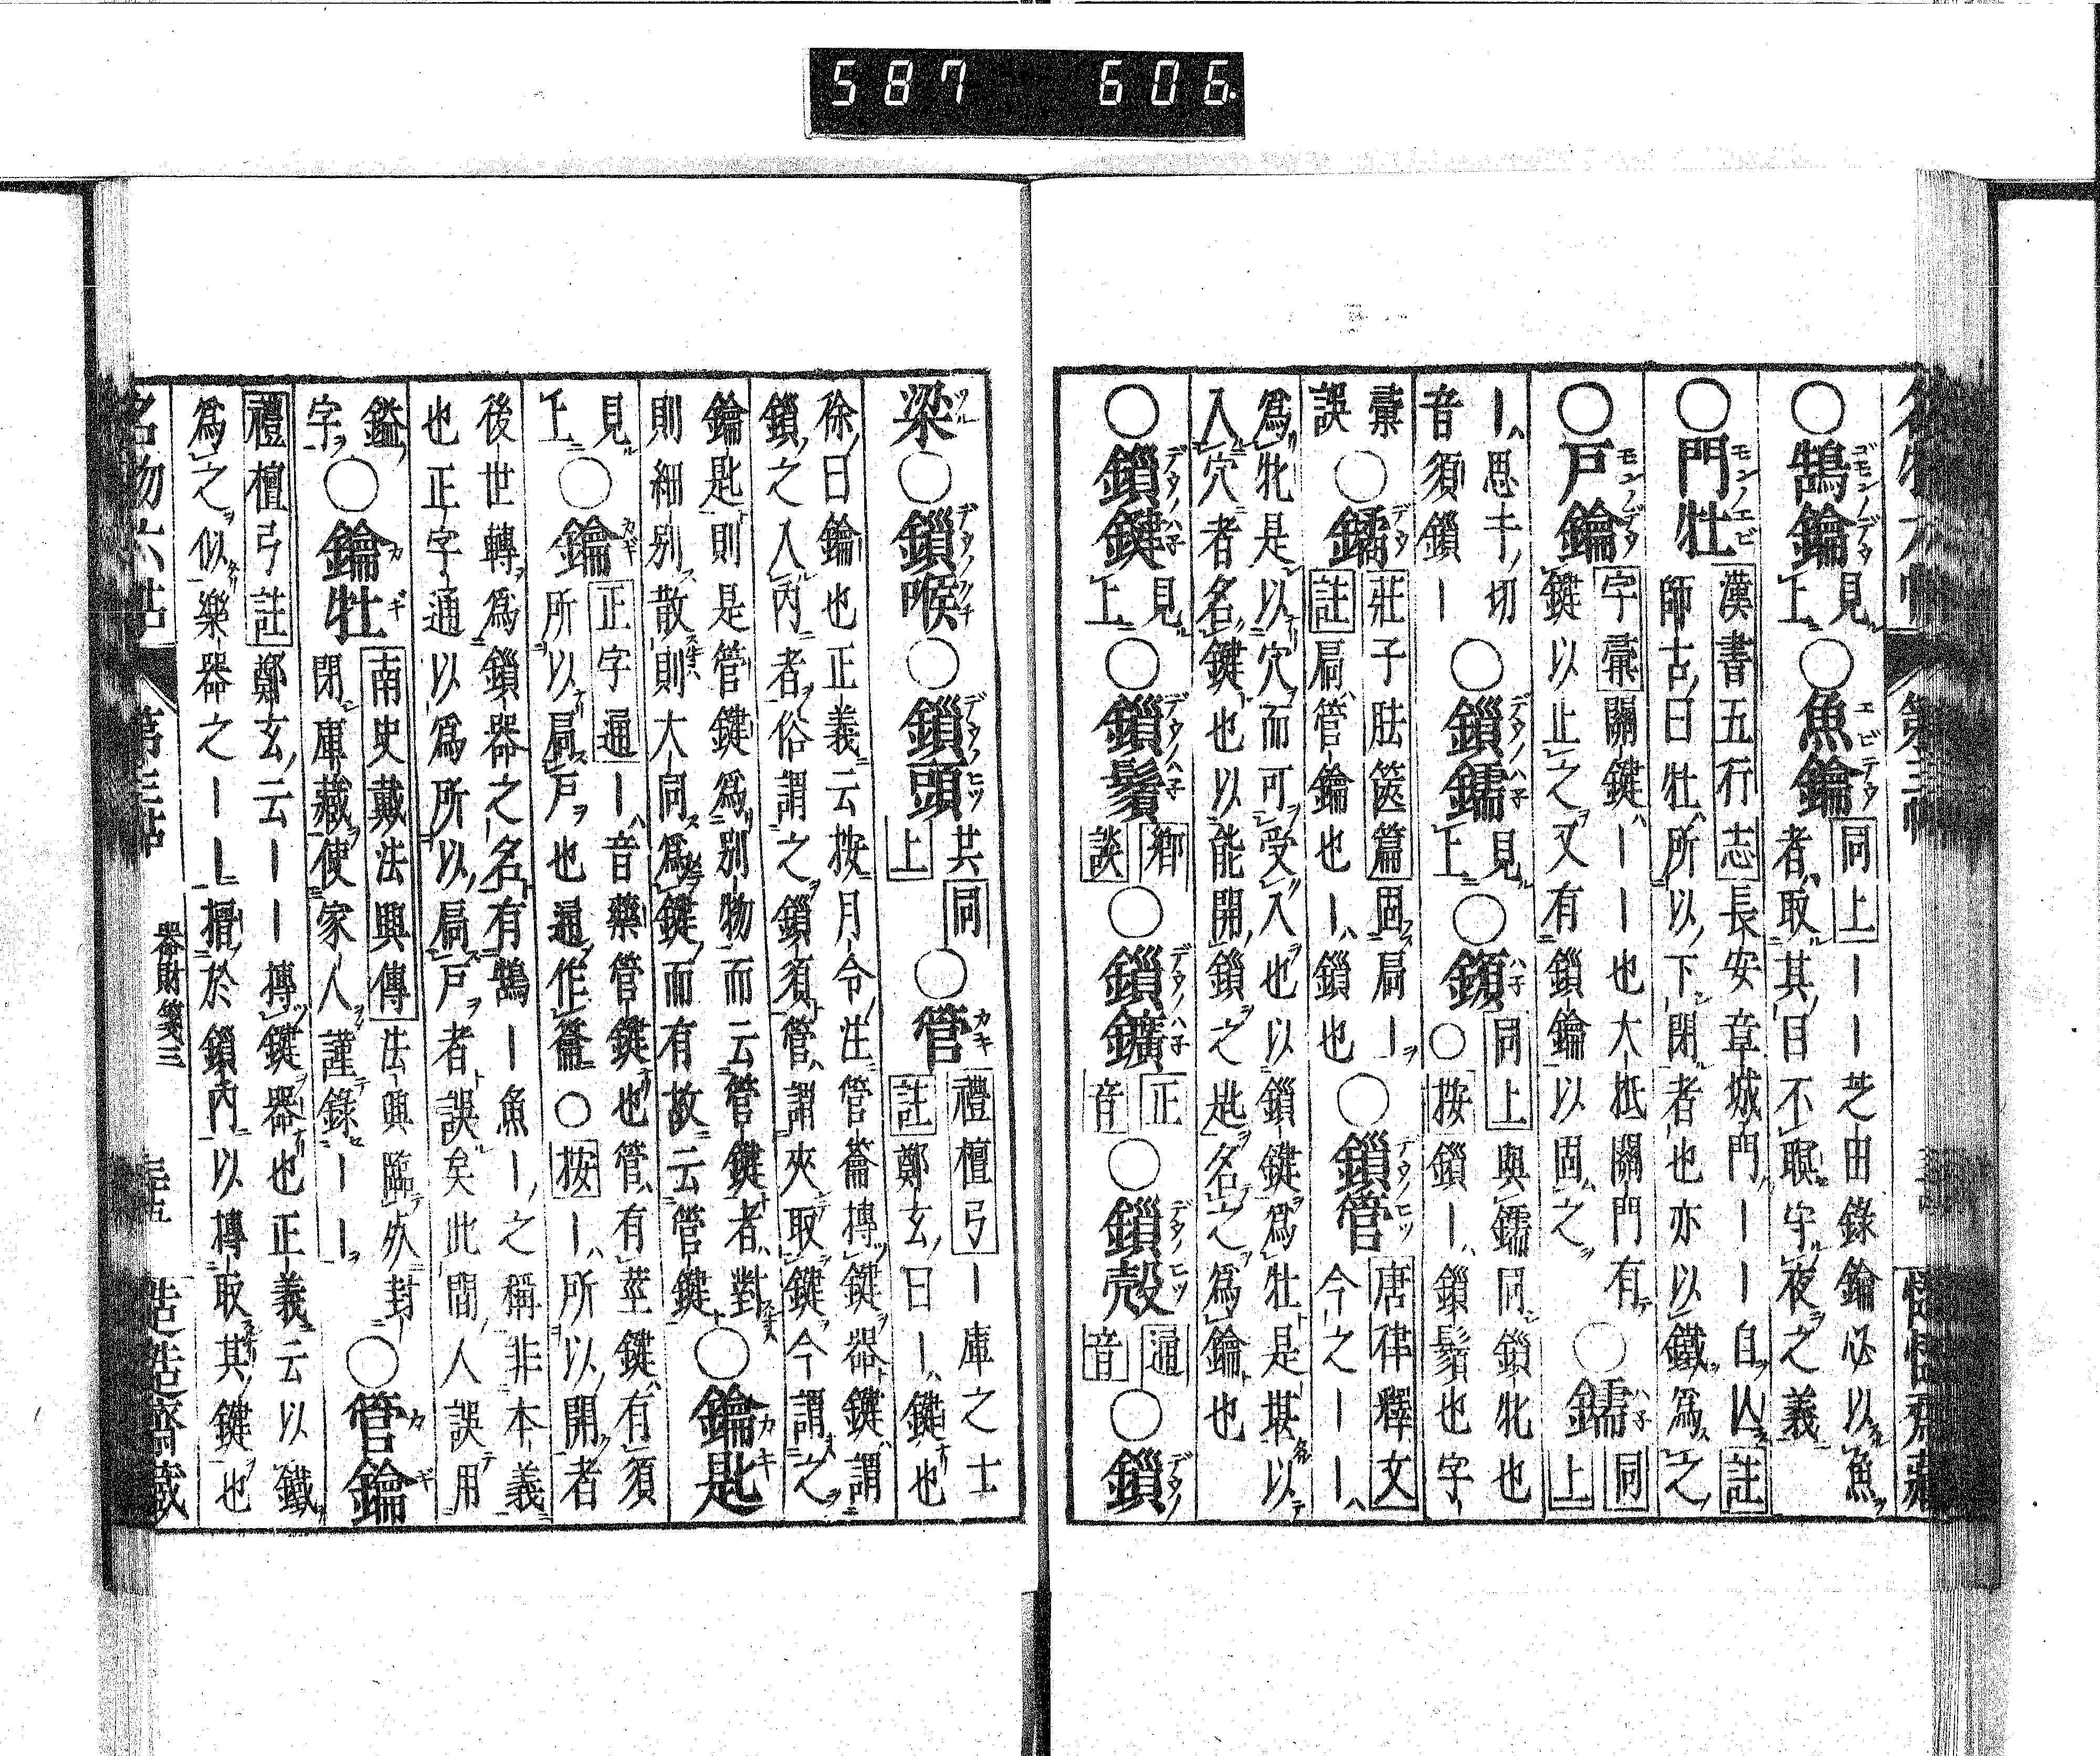 ○鵠鑰 見上 ○魚鑰 同上 ーー芝田錄鑰必以魚者取其目不瞑守夜之義
○門牡 漢書五行志 長安章城門ーー自亾 註 師古曰牡所以下閉者也亦以鐵爲之
○戶鑰 字彙 關鍵ーー也大抵關門有鍵以止之又有鎻鑰以固之 同上
ー思干切音須鎻ー ○鎻鐍 見上 同上 與鐍同鎻牝也○按鎻ー鎻鬚也字
彙誤 ○鐍 莊子胠篋篇 固扃ー 註 扃管鑰也ー鎻也 ○鎻管 唐律釋文 今之ーー
爲牝是以穴而可受入也以鎻鍵爲牡是堪以入穴者名鍵也以能開鎻之匙名之爲鑰也
○鎻鍵 見上 ○鎻鬚 鄉談 ○鎻鑛 正音 ○鎻殼 通音 ○鎻
梁 ○鎻喉 ○鎻頭 共同上 ○管 禮檀弓 ー庫之士 註 鄭玄曰ー鍵也
徐曰鑰也正義云按月令注管籥摶鍵器鍵謂鎻之入內者俗謂之鎻須管謂夾取鍵今謂之
鑰匙則是管鍵爲別物而云管鍵者對則細別散則大同爲鍵而有故云管鍵 ○鑰匙
見上 ○鑰 正字通 ー音藥管鍵也管有莖鍵有須所以扃戶也通作籥○按ー所以開者
後世轉爲鎻器之名有鵠ー魚ー之稱非本義也正字通以爲所以扃戶者誤矣此間人誤用
鎰字 ○鑰牡 南史戴法興傳 法興臨死封閉庫藏使家人謹錄ーー ○管鑰
禮檀弓註 鄭玄云ーー摶鍵器也正義云以鐵爲之似樂器之ーー搢於鎻內以摶取其鍵也
名物六帖 第三帖 器財箋三